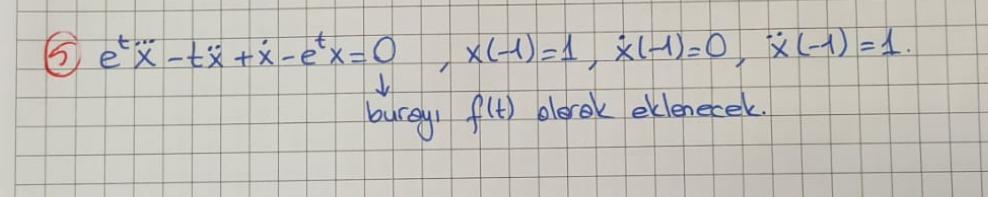 ⑤ eᵗ x⃛ - tẍ + ẋ - eᵗx = 0 , x(-1)=1, ẋ(-1)=0, ẍ(-1)=1.
↓
burayı f(t) olarak eklenecek.